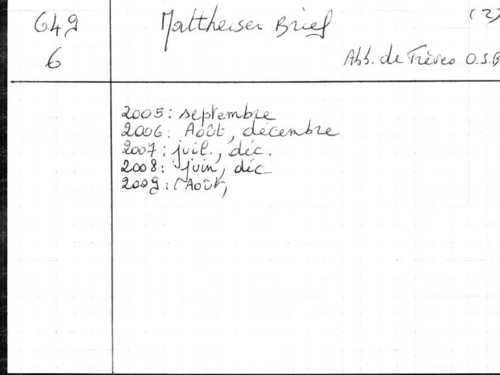 649 Mattheiser Brief (2)
6 Abb. de Trèves O.S.B
2005: septembre
2006: Août, décembre
2007: juil., déc.
2008: juin, déc
2009: Août,